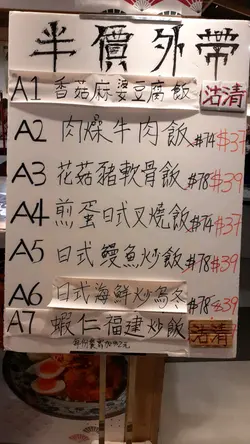 半價外帶
A1 香菇麻婆豆腐飯 沽清
A2 肉燥牛肉飯 $74 $37
A3 花菇豬軟骨飯 $78 $39
A4 煎蛋日式叉燒飯 $74 $37
A5 日式鰻魚炒飯 $78 $39
A6 日式海鮮炒烏冬 $78 $39
A7 蝦仁福建炒飯 沽清